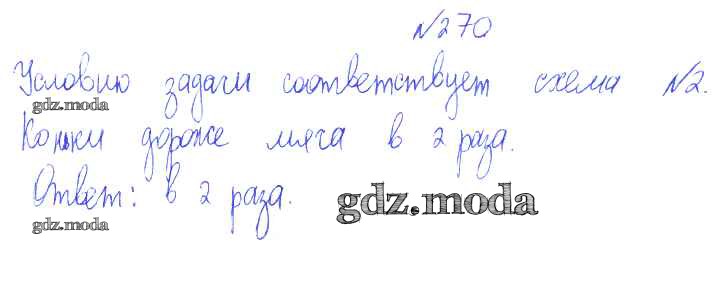 №270
Условию задачи соответствует схема №2.
gdz.moda
Коньки дороже мяча в 2 раза.
Ответ: в 2 раза.
gdz.moda
gdz.moda